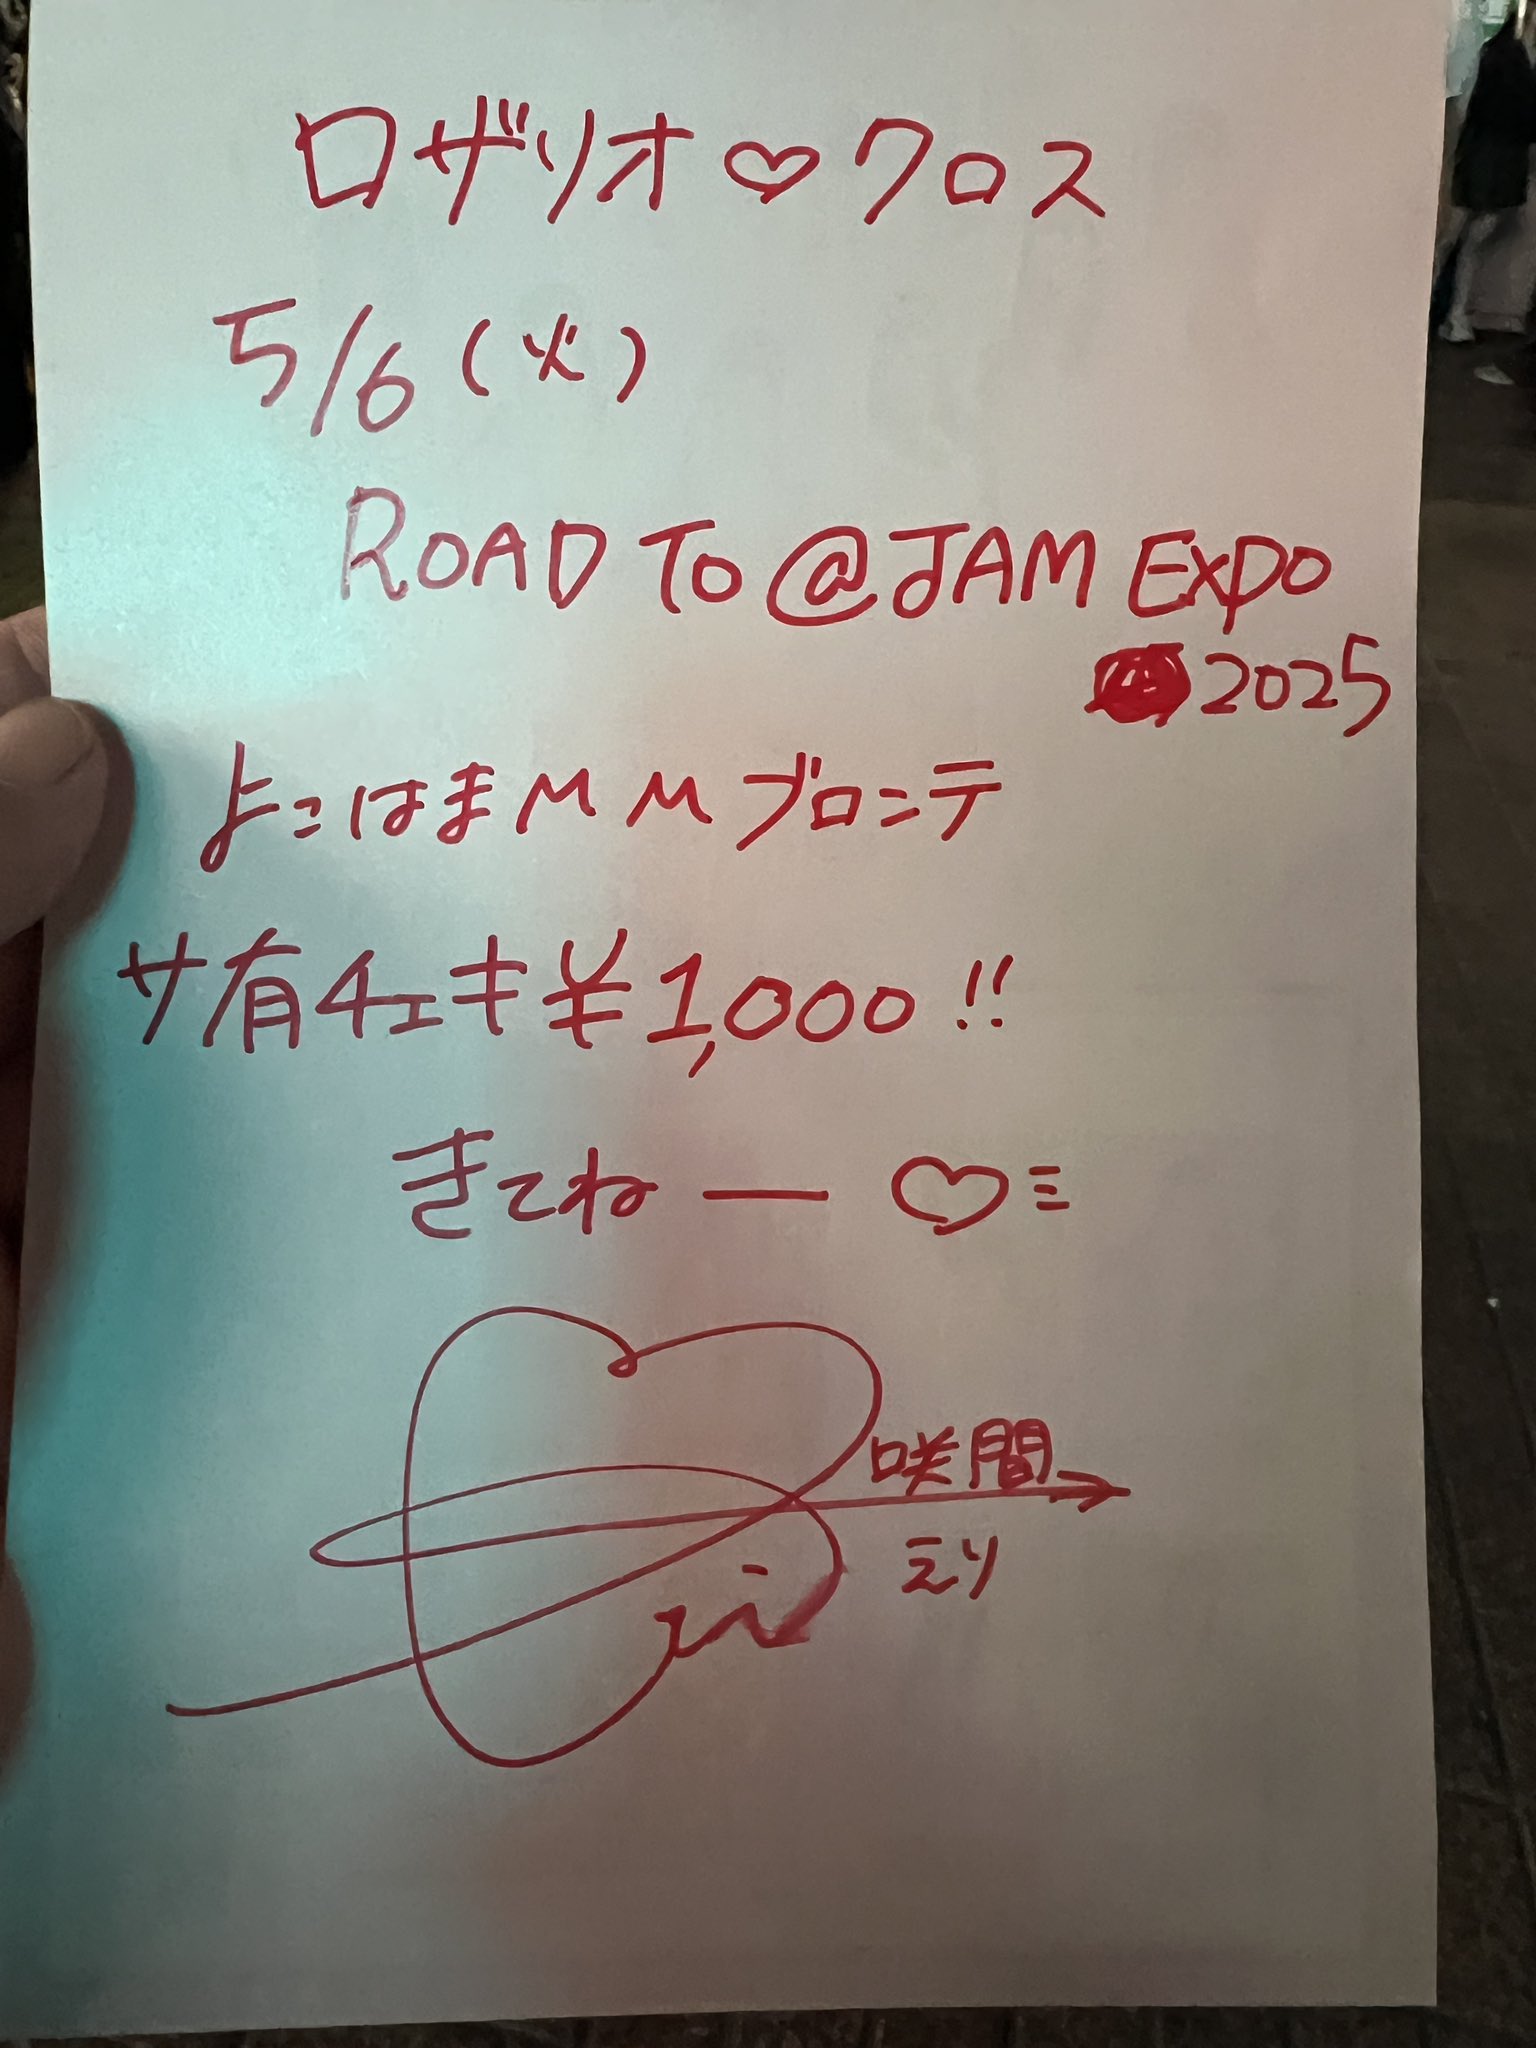 ロザリオ♡クロス
5/6(火)
ROAD TO @JAM EXPO
2025
よこはまMMブロンテ
サ有チェキ¥1,000!!
きてねー♡ミ
咲間
えり